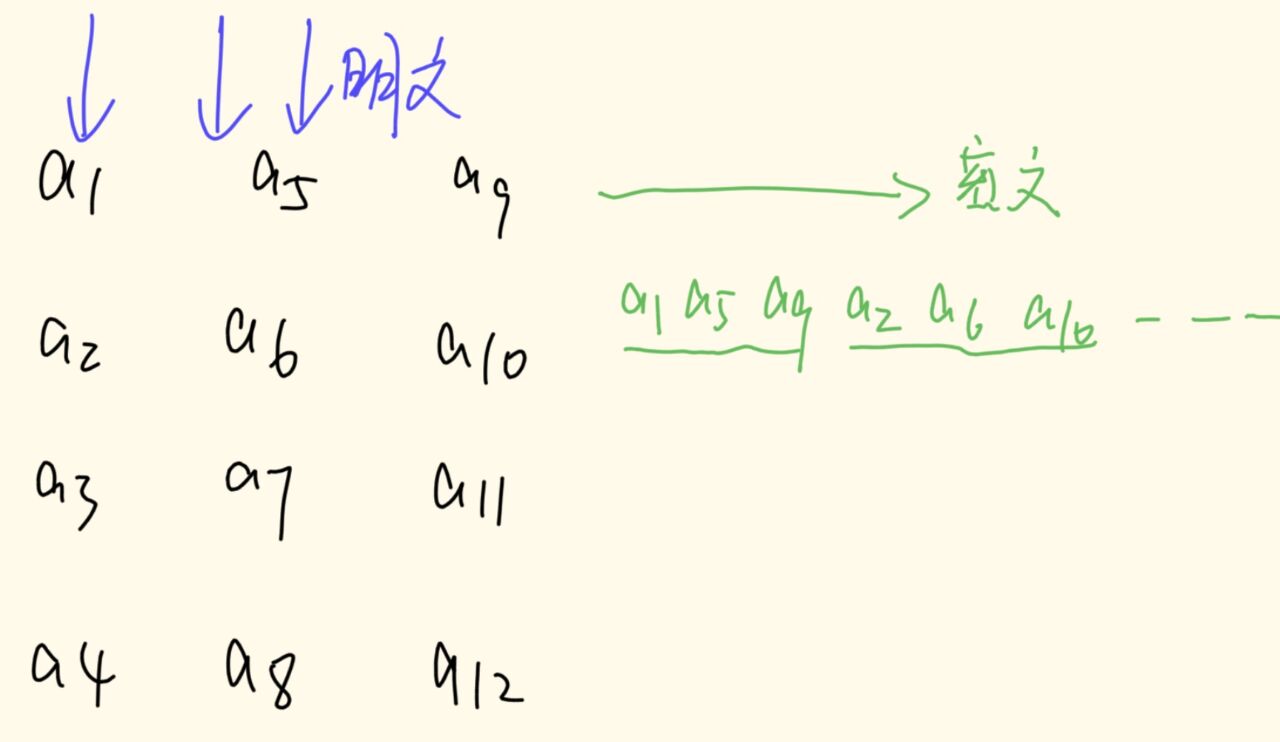 明文
a1 a5 a9 → 密文
a1 a5 a9 a2 a6 a10 - - -
a2 a6 a10
a3 a7 a11
a4 a8 a12